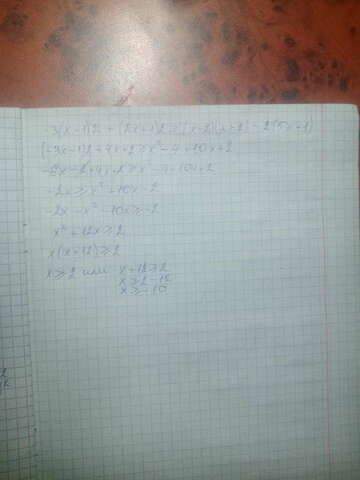 -3(x-1)2 + (2x+1)2 ≥ (x-2)(x+2) - 2(5x+1)
(-3x-1)2 + 4x + 2 ≥ x² - 4 + 10x + 2
-6x - 2 + 4x + 2 ≥ x² - 4 + 10x + 2
-2x ≥ x² + 10x - 2
-2x - x² - 10x ≥ -2
x² + 12x ≥ 2
x(x+12) ≥ 2
x ≥ 2 или x + 12 ≥ 2
x ≥ 2 - 12
x ≥ -10